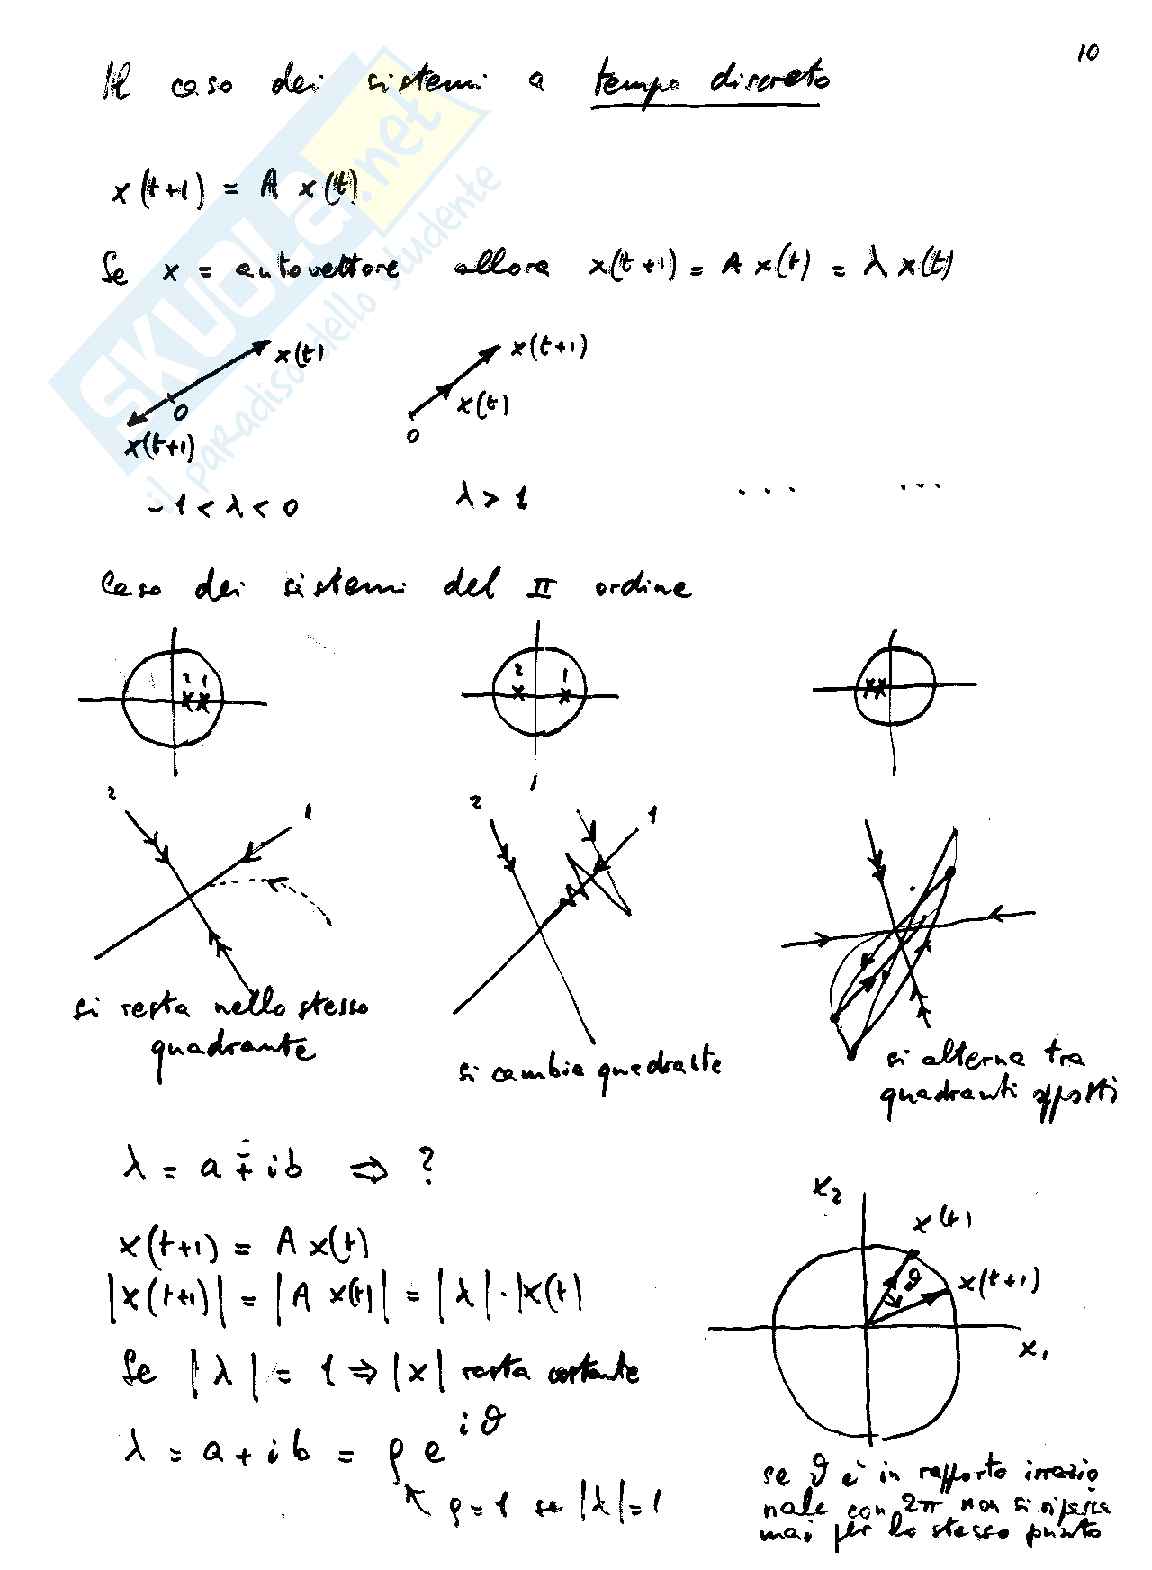 10
Il caso dei sistemi a tempo discreto
x(t+1) = A x(t)
Se x = autovettore allora x(t+1) = A x(t) = λ x(t)
x(t)
0
x(t+1)
x(t+1)
x(t)
0
-1 < λ < 0
λ > 1
... ...
Caso dei sistemi del II ordine
2 1
2 1
2 1
2 1
si resta nello stesso
quadrante
si cambia quadrante
si alterna tra
quadranti opposti
λ = a ± ib ⇒ ?
x(t+1) = A x(t)
|x(t+1)| = |A x(t)| = |λ|·|x(t)|
Se |λ| = 1 ⇒ |x| resta costante
λ = a + ib = ρ e^{iϑ}
ρ = 1 se |λ| = 1
x₂
x(t)
ϑ
x(t+1)
x₁
se ϑ è in rapporto irrazio
nale con 2π non si ripassa
mai per lo stesso punto
SKUOLA.net
il paradiso dello studente